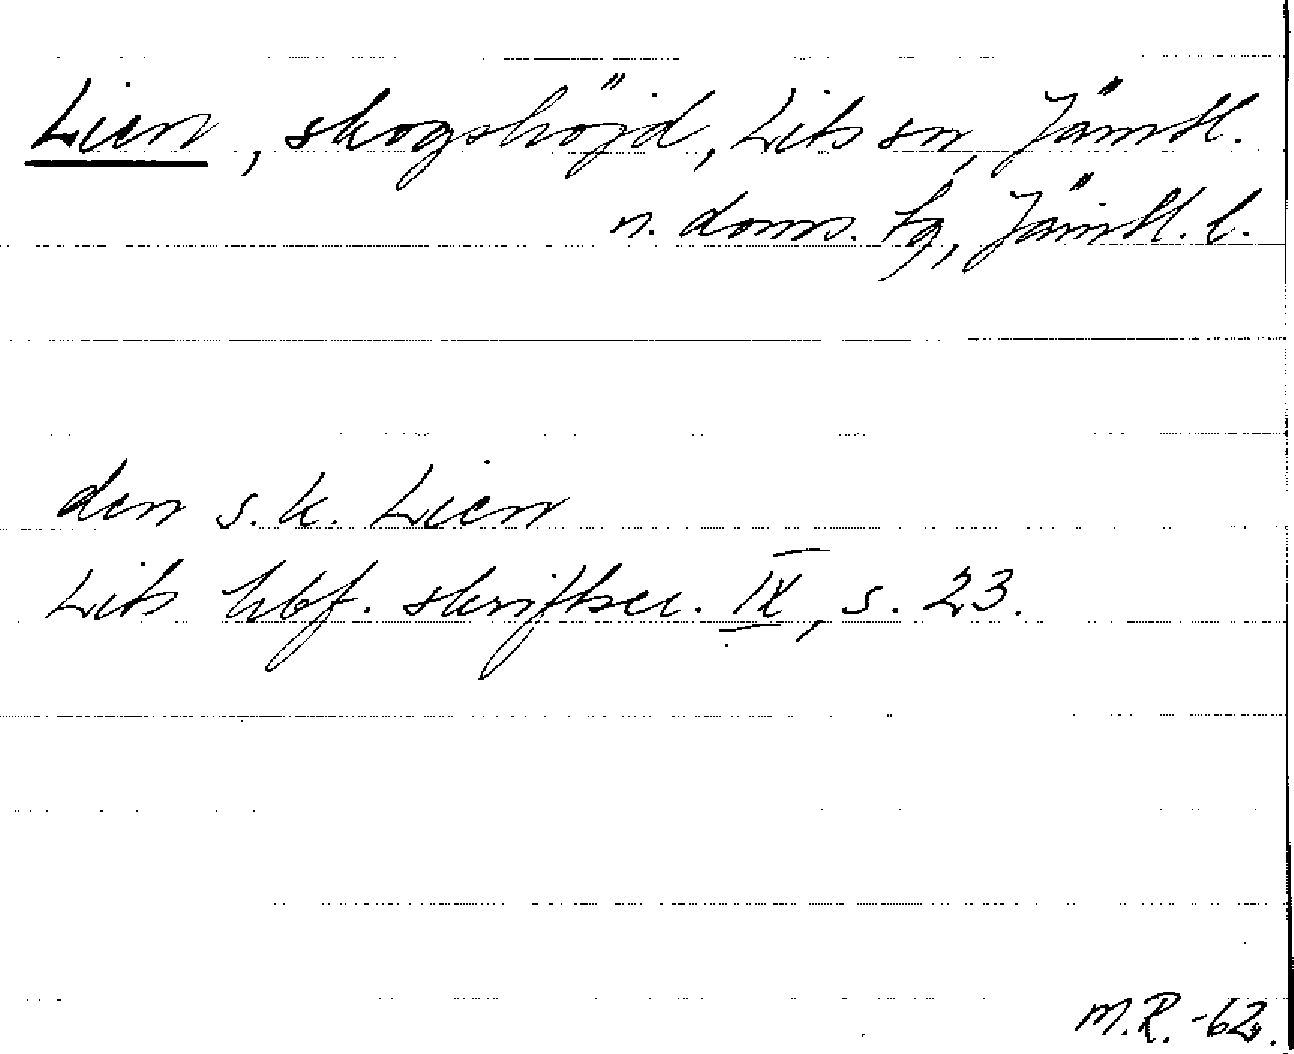 Lien, skogshöjd, Lits sn, Jämtl.
n. doms. tg, Jämtl. l.
den s.k. Lien
Lits hbf. skriftser. IX, s. 23.
M.R. -62.